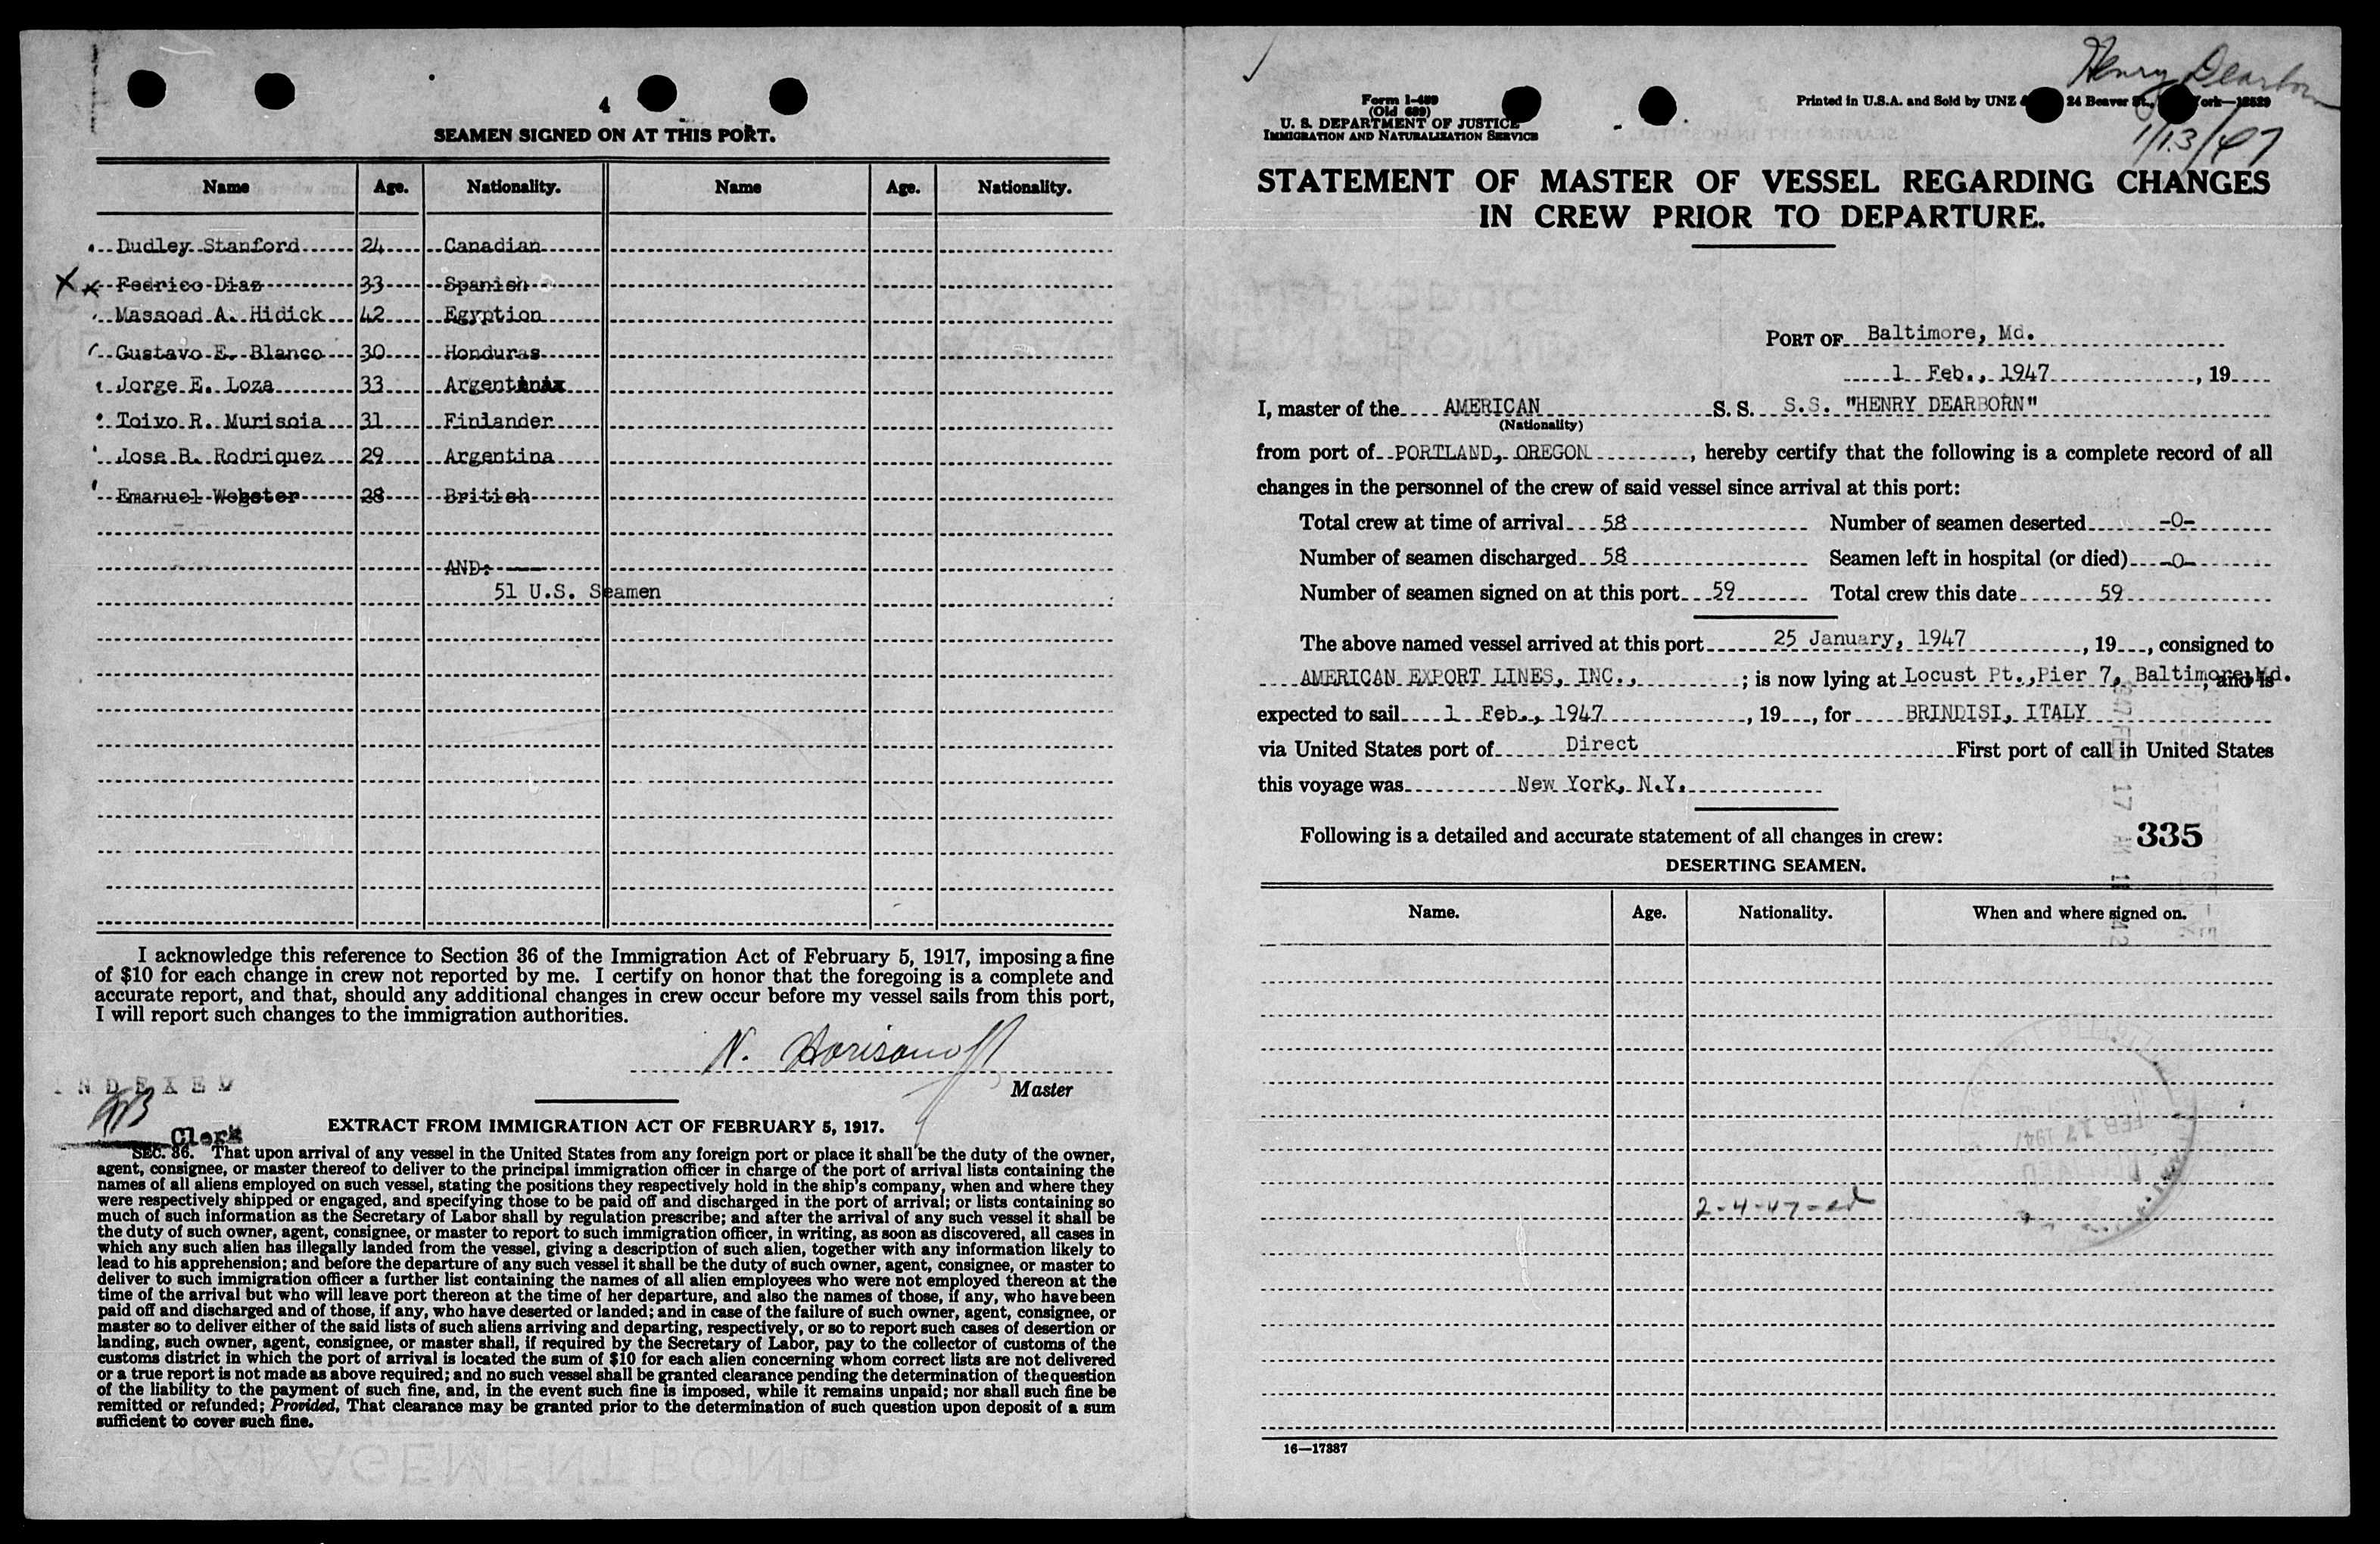 4
SEAMEN SIGNED ON AT THIS PORT.
Name Age. Nationality. Name Age. Nationality.
Dudley Stanford 24 Canadian
X x Fedrico Diaz 33 Spanish
Massoad A. Hidick 42 Egyption
Gustavo E. Blanco 30 Honduras
Jorge E. Loza 33 Argentinix
Toivo R. Murisoia 31 Finlander
Jose B. Rodriquez 29 Argentina
Emanuel Webster 28 British
AND:
51 U.S. Seamen
I acknowledge this reference to Section 36 of the Immigration Act of February 5, 1917, imposing a fine
of $10 for each change in crew not reported by me. I certify on honor that the foregoing is a complete and
accurate report, and that, should any additional changes in crew occur before my vessel sails from this port,
I will report such changes to the immigration authorities.
N.
Master
INDEXED
Clerk
EXTRACT FROM IMMIGRATION ACT OF FEBRUARY 5, 1917.
SEC. 36. That upon arrival of any vessel in the United States from any foreign port or place it shall be the duty of the owner,
agent, consignee, or master thereof to deliver to the principal immigration officer in charge of the port of arrival lists containing the
names of all aliens employed on such vessel, stating the positions they respectively hold in the ship's company, when and where they
were respectively shipped or engaged, and specifying those to be paid off and discharged in the port of arrival; or lists containing so
much of such information as the Secretary of Labor shall by regulation prescribe; and after the arrival of any such vessel it shall be
the duty of such owner, agent, consignee, or master to report to such immigration officer, in writing, as soon as discovered, all cases in
which any such alien has illegally landed from the vessel, giving a description of such alien, together with any information likely to
lead to his apprehension; and before the departure of any such vessel it shall be the duty of such owner, agent, consignee, or master to
deliver to such immigration officer a further list containing the names of all alien employees who were not employed thereon at the
time of the arrival but who will leave port thereon at the time of her departure, and also the names of those, if any, who have been
paid off and discharged and of those, if any, who have deserted or landed; and in case of the failure of such owner, agent, consignee, or
master so to deliver either of the said lists of such aliens arriving and departing, respectively, or so to report such cases of desertion or
landing, such owner, agent, consignee, or master shall, if required by the Secretary of Labor, pay to the collector of customs of the
customs district in which the port of arrival is located the sum of $10 for each alien concerning whom correct lists are not delivered
or a true report is not made as above required; and no such vessel shall be granted clearance pending the determination of the question
of the liability to the payment of such fine, and, in the event such fine is imposed, while it remains unpaid; nor shall such fine be
remitted or refunded; Provided, That clearance may be granted prior to the determination of such question upon deposit of a sum
sufficient to cover such fine.
Henry Dearborn
1/13/47
Form I-489
(Old 689)
U. S. DEPARTMENT OF JUSTICE
IMMIGRATION AND NATURALIZATION SERVICE
Printed in U.S.A. and Sold by UNZ 24 Beaver St., ork—12529
STATEMENT OF MASTER OF VESSEL REGARDING CHANGES
IN CREW PRIOR TO DEPARTURE.
PORT OF Baltimore, Md.
1 Feb., 1947, 19
I, master of the AMERICAN S. S. S.S. "HENRY DEARBORN"
(Nationality)
from port of PORTLAND, OREGON, hereby certify that the following is a complete record of all
changes in the personnel of the crew of said vessel since arrival at this port:
Total crew at time of arrival 58 Number of seamen deserted -0-
Number of seamen discharged 58 Seamen left in hospital (or died) -0-
Number of seamen signed on at this port 59 Total crew this date 59
The above named vessel arrived at this port 25 January, 1947, 19, consigned to
AMERICAN EXPORT LINES, INC., ; is now lying at Locust Pt., Pier 7, Baltimore, Md., and is
expected to sail 1 Feb., 1947, 19, for BRINDISI, ITALY
via United States port of Direct First port of call in United States
this voyage was New York, N.Y.
Following is a detailed and accurate statement of all changes in crew: 335
DESERTING SEAMEN.
Name. Age. Nationality. When and where signed on.
2-4-47-ed
16—17387